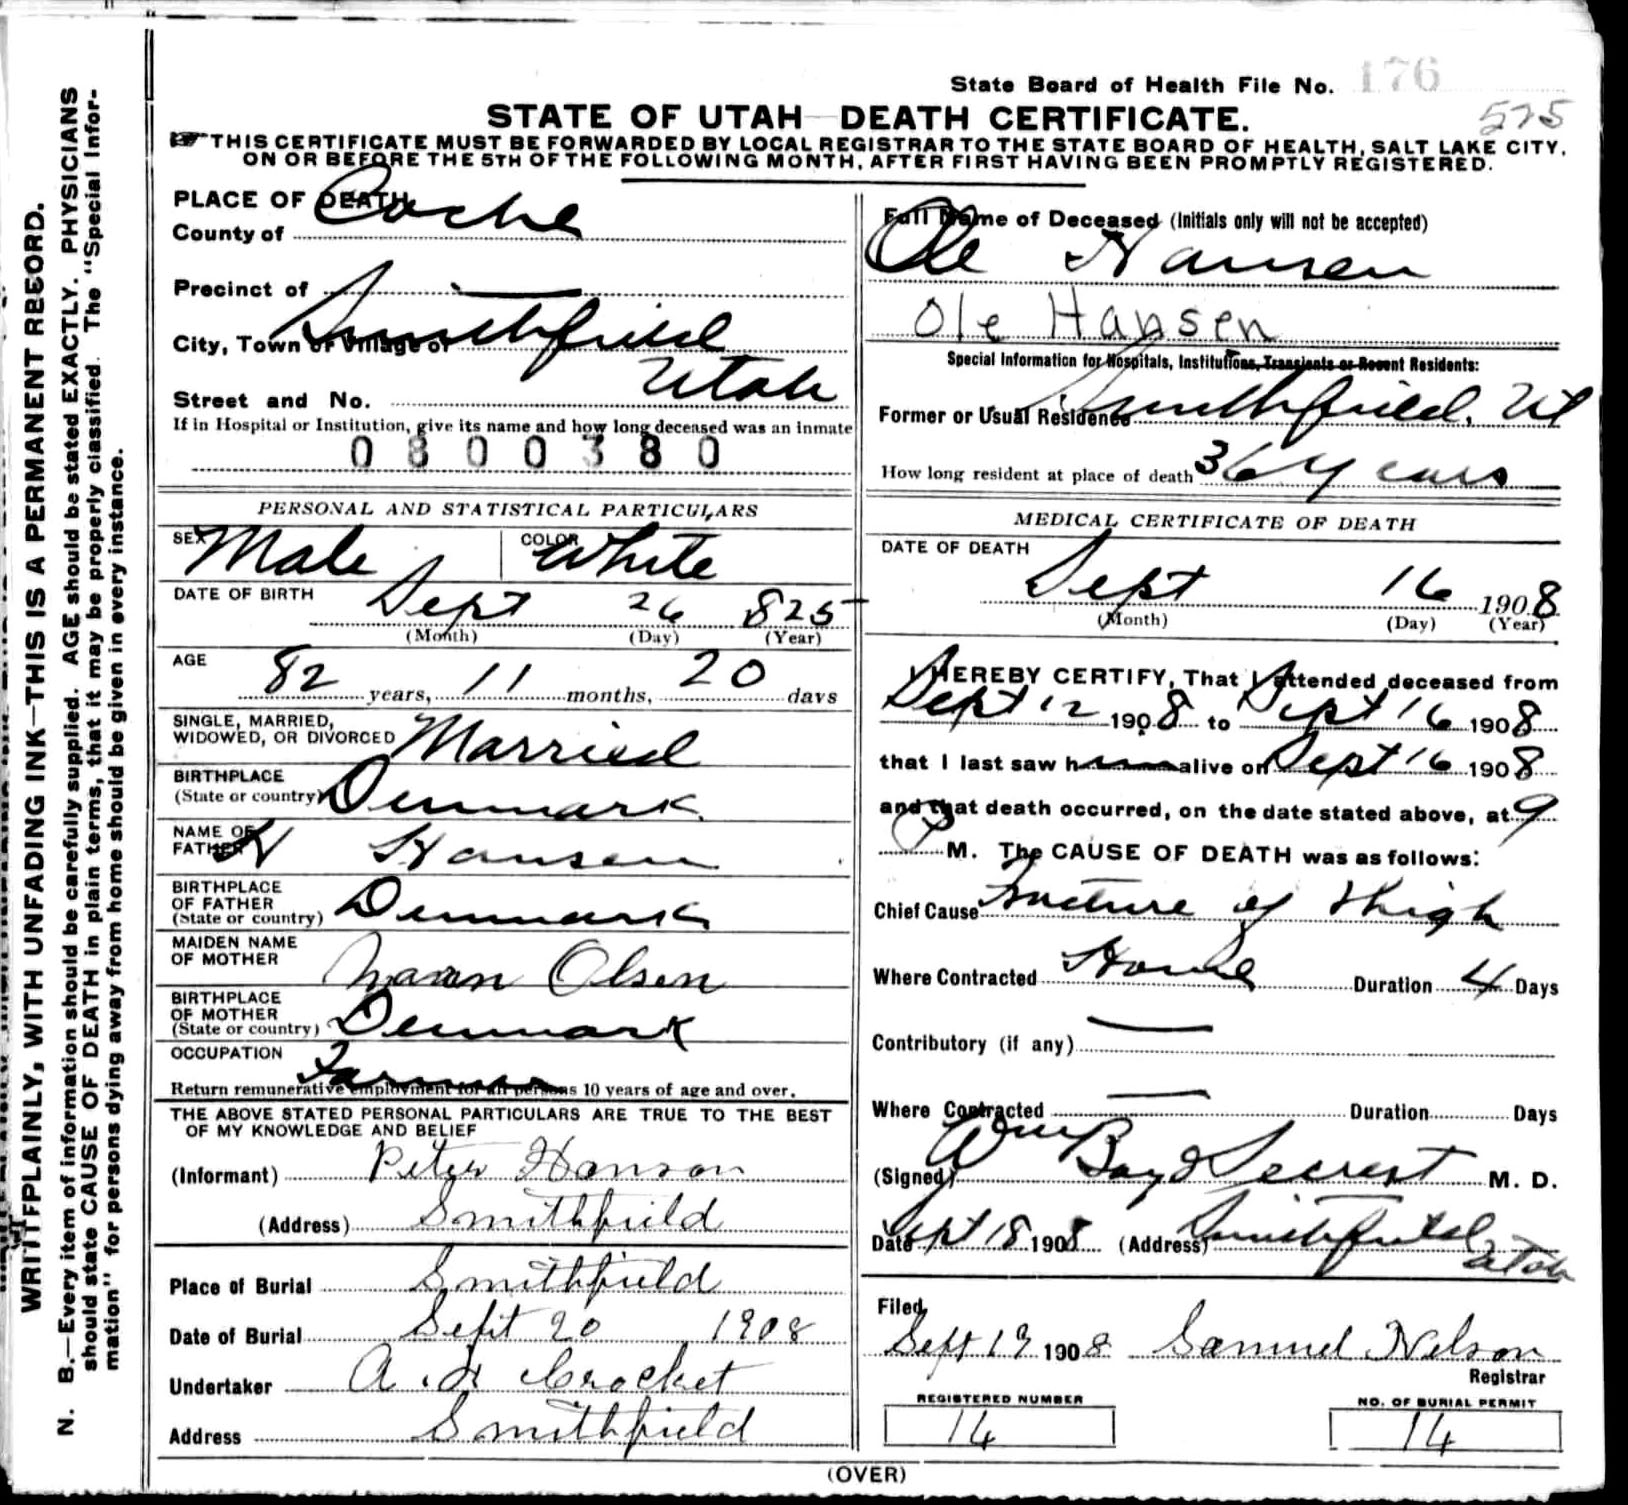 State Board of Health File No. 176
575
STATE OF UTAH—DEATH CERTIFICATE.
THIS CERTIFICATE MUST BE FORWARDED BY LOCAL REGISTRAR TO THE STATE BOARD OF HEALTH, SALT LAKE CITY,
ON OR BEFORE THE 5TH OF THE FOLLOWING MONTH, AFTER FIRST HAVING BEEN PROMPTLY REGISTERED.
WRITE PLAINLY, WITH UNFADING INK—THIS IS A PERMANENT RECORD.
N. B.—Every item of information should be carefully supplied. AGE should be stated EXACTLY. PHYSICIANS
should state CAUSE OF DEATH in plain terms, that it may be properly classified. The "Special Infor-
mation" for persons dying away from home should be given in every instance.
PLACE OF DEATH
County of Cache
Precinct of —
City, Town or Village of Smithfield
Utah
Street and No.
If in Hospital or Institution, give its name and how long deceased was an inmate
0800380
PERSONAL AND STATISTICAL PARTICULARS
SEX Male COLOR White
DATE OF BIRTH Sept 26 825
(Month) (Day) (Year)
AGE 82 years, 11 months, 20 days
SINGLE, MARRIED,
WIDOWED, OR DIVORCED Married
BIRTHPLACE
(State or country) Denmark
NAME OF
FATHER H Hansen
BIRTHPLACE
OF FATHER
(State or country) Denmark
MAIDEN NAME
OF MOTHER Olsen
BIRTHPLACE
OF MOTHER
(State or country) Denmark
OCCUPATION Farmer
Return remunerative employment for all persons 10 years of age and over.
THE ABOVE STATED PERSONAL PARTICULARS ARE TRUE TO THE BEST
OF MY KNOWLEDGE AND BELIEF
(Informant) Peter Hanson
(Address) Smithfield
Place of Burial Smithfield
Date of Burial Sept 20 1908
Undertaker A. H Crocket
Address Smithfield
Full Name of Deceased (Initials only will not be accepted)
Ole Hansen
Ole Hansen
Special Information for Hospitals, Institutions, Transients or Recent Residents:
Former or Usual Residence Smithfield, Ut
How long resident at place of death 36 years
MEDICAL CERTIFICATE OF DEATH
DATE OF DEATH
Sept 16 1908
(Month) (Day) (Year)
I HEREBY CERTIFY, That I attended deceased from
Sept 12 1908 to Sept 16 1908
that I last saw him alive on Sept 16 1908
and that death occurred, on the date stated above, at 9
P M. The CAUSE OF DEATH was as follows:
Chief Cause Fracture of Thigh
Where Contracted Home Duration 4 Days
Contributory (if any) —
Where Contracted — Duration Days
(Signed) Wm Boyd Secrest M. D.
Date Sept 18 1908 (Address) Smithfield
Utah
Filed,
Sept 19 1908 Samuel Nelson
Registrar
REGISTERED NUMBER
14
NO. OF BURIAL PERMIT
14
(OVER)